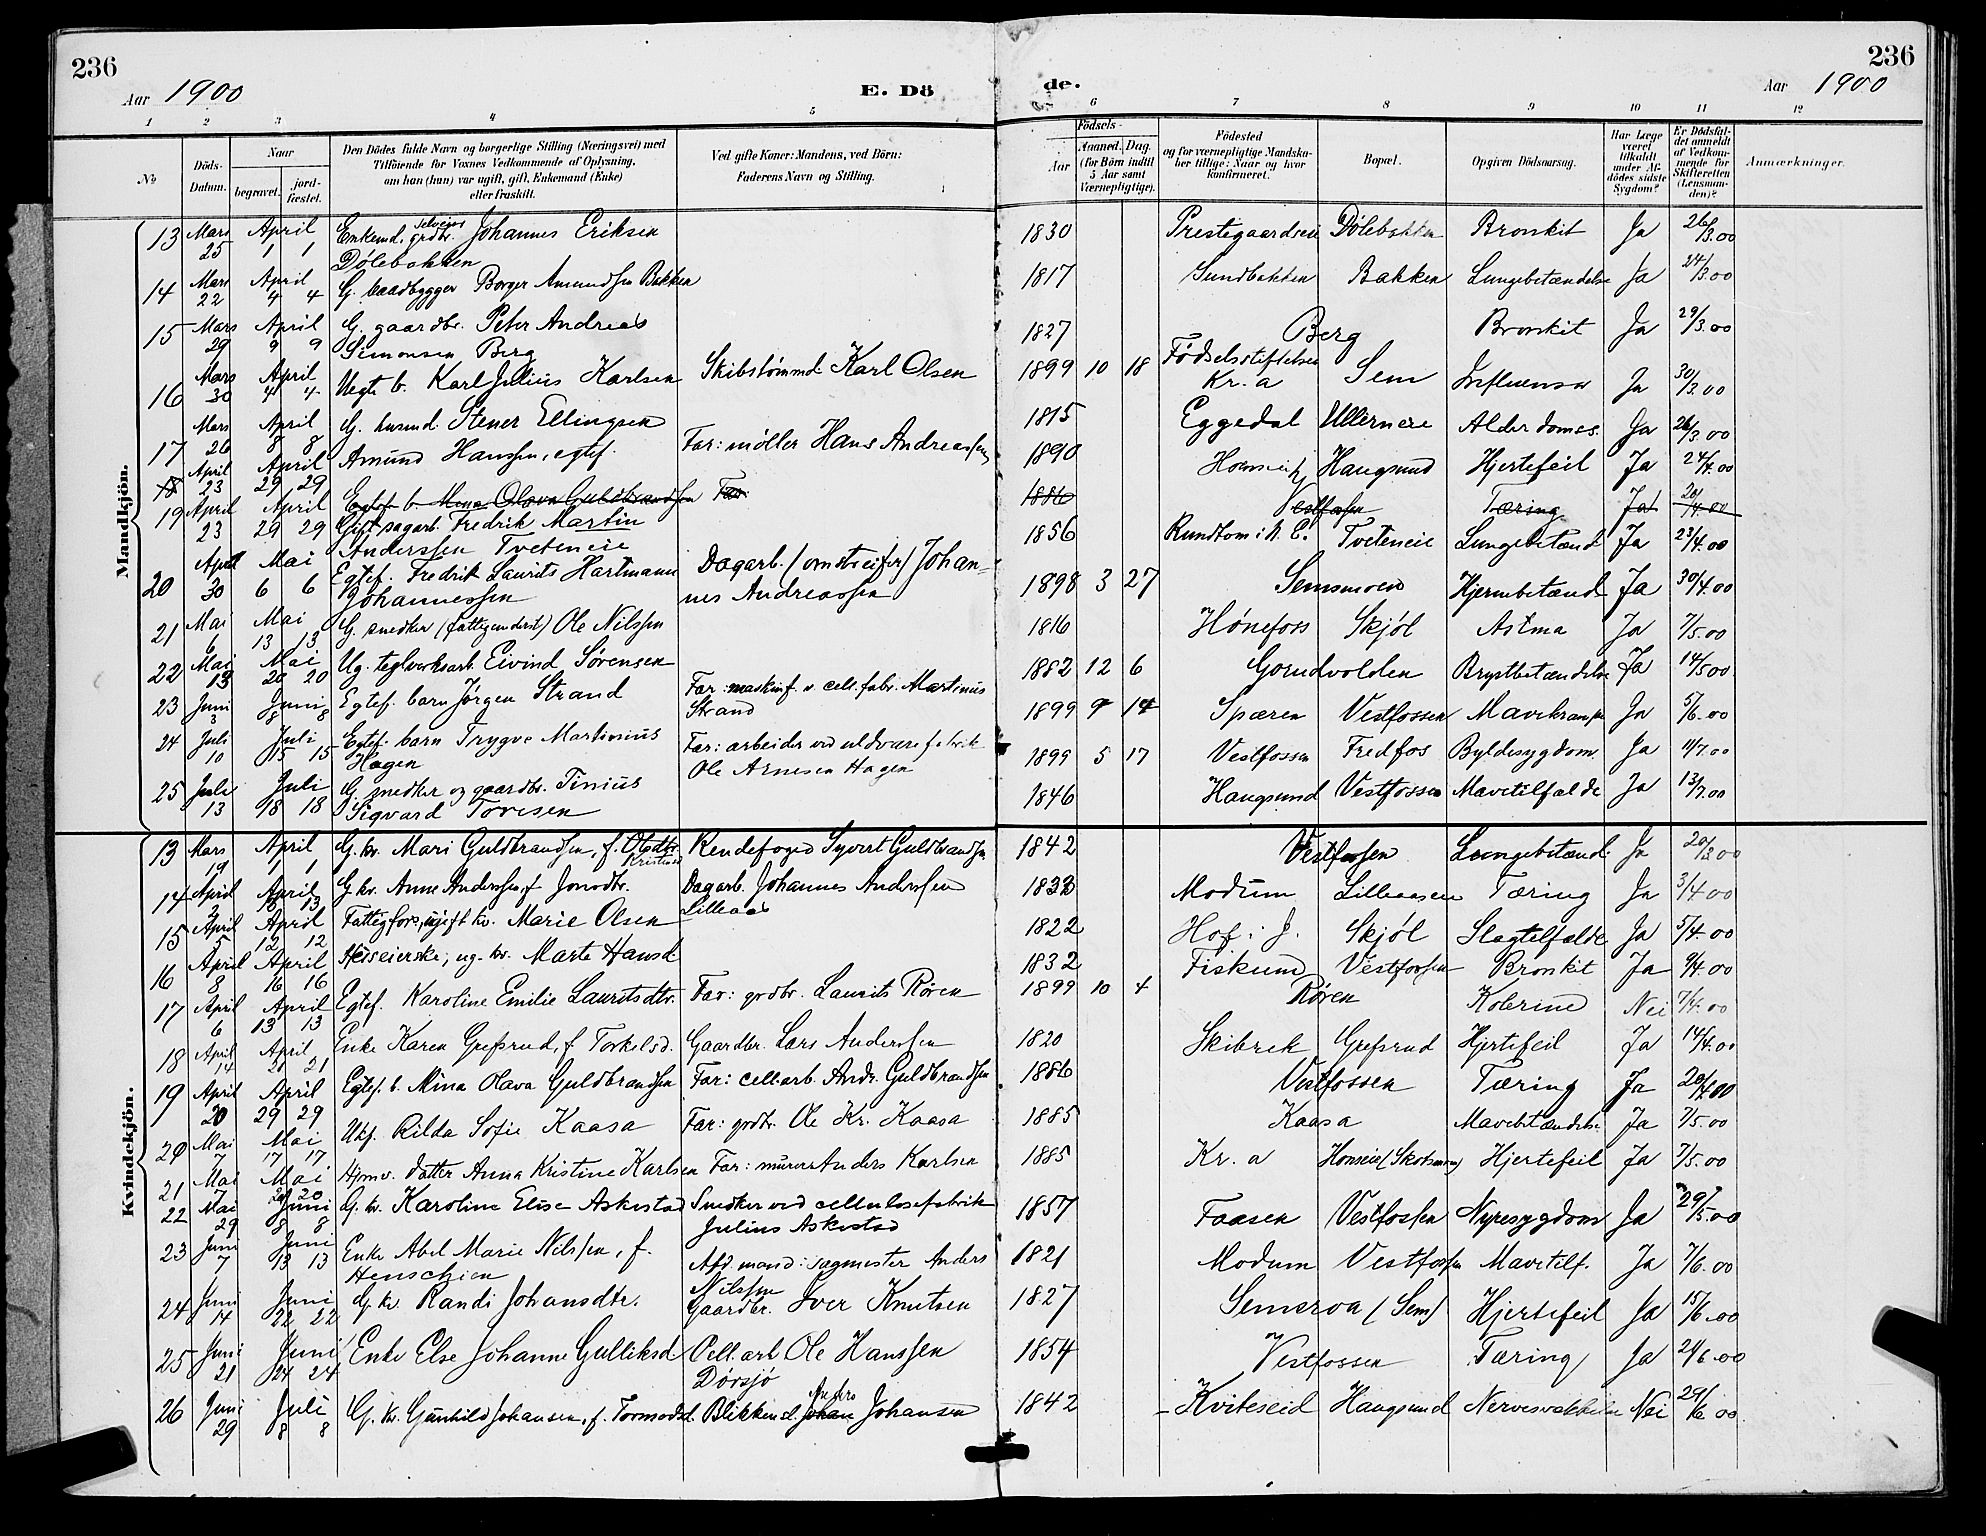 236
236
Aar 1900
E. Dö
de.
Aar 1900
1 2 3 4 5 6 7 8 9 10 11 12
№
Döds-Datum.
Naar
begravet.
jord-fæstet.
Den Dödes fulde Navn og borgerlige Stilling (Næringsvei) med
Tilföiende for Voxnes Vedkommende af Oplysning,
om han (hun) var ugift, gift, Enkemand (Enke)
eller fraskilt.
Ved gifte Koner: Mandens, ved Börn:
Faderens Navn og Stilling.
Födsels-
Aar
Maaned. Dag.
(for Börn indtil
5 Aar samt
Værnepligtige).
Födested
og for værnepligtige Mandska-
ber tillige: Naar og hvor
konfirmeret.
Bopæl.
Opgiven Dödsaarsag.
Har Læge
været
tilkaldt
under Af-
dödes sidste
Sygdom?
Er Dödsfal-
det anmeldt
af Vedkom-
mende for
Skifteretten
(Lensman-
den)?
Anmærkninger.
Mandkjön.
13 Mars 25 April 1 1 Enkemd. selveier grdbr. Johannes Eriksen Dølebakken 1830 Prestegaardseie Dølebakken Bronkit Ja 26/3.00
14 Mars 22 April 4 4 G. baadbygger Borger Amundsen Bakken 1817 Sundbakken Bakken Lungebetændelse Ja 24/3.00
15 Mars 29 April 9 9 G. gaardbr. Peter Andreas Simonsen Berg 1827 Berg Bronkit Ja 29/3.00
16 Mars 30 April 4 4 Uegte b. Karl Julius Karlsen Skibstømmd Karl Olsen 1899 10 18 Fødselsstiftelsen Kr.a Sem Influensa Ja 30/3.00
17 Mars 26 April 8 8 G. husmd. Stener Ellingsen 1815 Eggedal Ullerneie Alderdoms. Ja 26/3.00
18 April 23 April 29 29 Amund Hansen, egtef. Far: møller Hans Andreassen 1890 Haugsund Hjertefeil Ja 24/4.00
Egtef. b. Mina Olava Guldbrandsen Far: 1886 Vestfossen Tæring Ja 20/4.00
19 April 23 April 29 29 Gift sagarb. Fredrik Martin Anderssen Tveteneie 1856 Rundtom i N. E. Tveteneie Lungebetænd Ja 23/4.00
20 April 30 Mai 6 6 Egtef. Fredrik Laurits Hartmann Johannessen Dagarb. (omstreifer) Johannes Andreassen 1898 3 27 Semsmoen Hjernebetænd Ja 30/4.00
21 Mai 6 Mai 13 13 G. snedker (fattigunderst) Ole Nilsen 1816 Hønefoss Skjøl Astma Ja 7/5.00
22 Mai 13 Mai 20 20 Ug. teglverksarb. Eivind Sørensen 1882 12 6 Gorudvolden Brystbetændelse Ja 14/5.00
23 Juni 3 Juni 8 8 Egtef. barn Jørgen Strand Far: maskinf. v. cell. fabr. Martinus Strand 1899 9 14 Spæren Vestfossen Mavekrampe Ja 5/6.00
24 Juli 10 Juli 15 15 Egtef. barn Trygve Martinius Hagen Far: arbeider ved uldvarefabrik Ole Arnesen Hagen 1899 5 17 Vestfossen Fredfos Byldesygdom Ja 11/7.00
25 Juli 13 Juli 18 18 G. snedker og gaardbr. Tinius Sigvard Toresen 1846 Haugsund Vestfossen Mavetilfælde Ja 13/7.00
Kvindekjön.
13 Mars 19 April 1 1 G. kv. Mari Guldbrandsen, f. Olsdtr. Rendefoged Syvert Guldbrandsen 1842 Vestfossen Lungebetænd. Ja 20/3.00
14 April 2 April 13 13 G. kv. Anne Anderssen, f. Jonsdtr. Dagarb. Johannes Anderssen Lilleaas 1833 Modum Lilleaasen Tæring Ja 3/4 00
15 April 5 April 12 12 Fattigfors., ugift kv. Marie Olsen 1822 Hof i J. Skjøl Slagtilfælde Ja 5/4.00
16 April 8 April 16 16 Huseierske, ug. kv. Marte Hansd. 1832 Fiskum Vestfossen Bronkit Ja 9/4.00
17 April 6 April 13 13 Egtef. Karoline Emilie Lauritsdtr. Far: grdbr. Laurits Røren 1899 10 4 Røren Kolerine Nei 7/4.00
18 April 14 April 21 21 Enke Karen Grefsrud, f. Torkelsd. Gaardbr. Lars Anderssen 1820 Skibrek Grefsrud Hjertefeil Ja 14/4.00
19 April 20 April 29 29 Egtef. b. Mina Olava Guldbrandsen Far: cell.arb. Andr. Guldbrandsen 1886 Vestfossen Tæring Ja 20/4.00
20 Mai 7 Mai 17 17 Ukf. Rilda Sofie Kaasa Far: grdbr. Ole Kr. Kaasa 1885 Kaasa Mavebetændelse Ja 7/5.00
21 Mai 7 Mai 20 20 Hjmv. datter Anna Kristine Karlsen Far: murer Anders Karlsen 1885 Kr.a Honseie (Skotsmoen) Hjertefeil Ja 7/5.00
22 Mai 29 Juni 8 8 G. kv. Karoline Elise Askestad Snedker ved cellulosefabrik Julius Askestad 1857 Faasen Vestfossen Nyresygdom Ja 29/5.00
23 Juni 7 Juni 13 13 Enke Abel Marie Nilssen, f. Henschien Afd. mand: sagmester Anders Nilssen 1821 Modum Vestfossen Mavetilf. Ja 7/6.00
24 Juni 14 Juni 22 22 G. kv. Randi Johansdtr. Gaardbr. Iver Knutsen 1827 Semseroa (Sem) Hjertefeil Ja 15/6.00
25 Juni 21 Juni 24 24 Enke Else Johanne Gulliksd. Cell. arb. Ole Hanssen Dørsjø 1854 Vestfossen Tæring Ja 21/6.00
26 Juni 29 Juli 8 8 G. kv. Gunhild Johansen, f. Tormodsd. Blikkensl. Johan Anders Johansen 1842 Kviteseid Haugsund Nervesvækkelse Nei 29/6.00